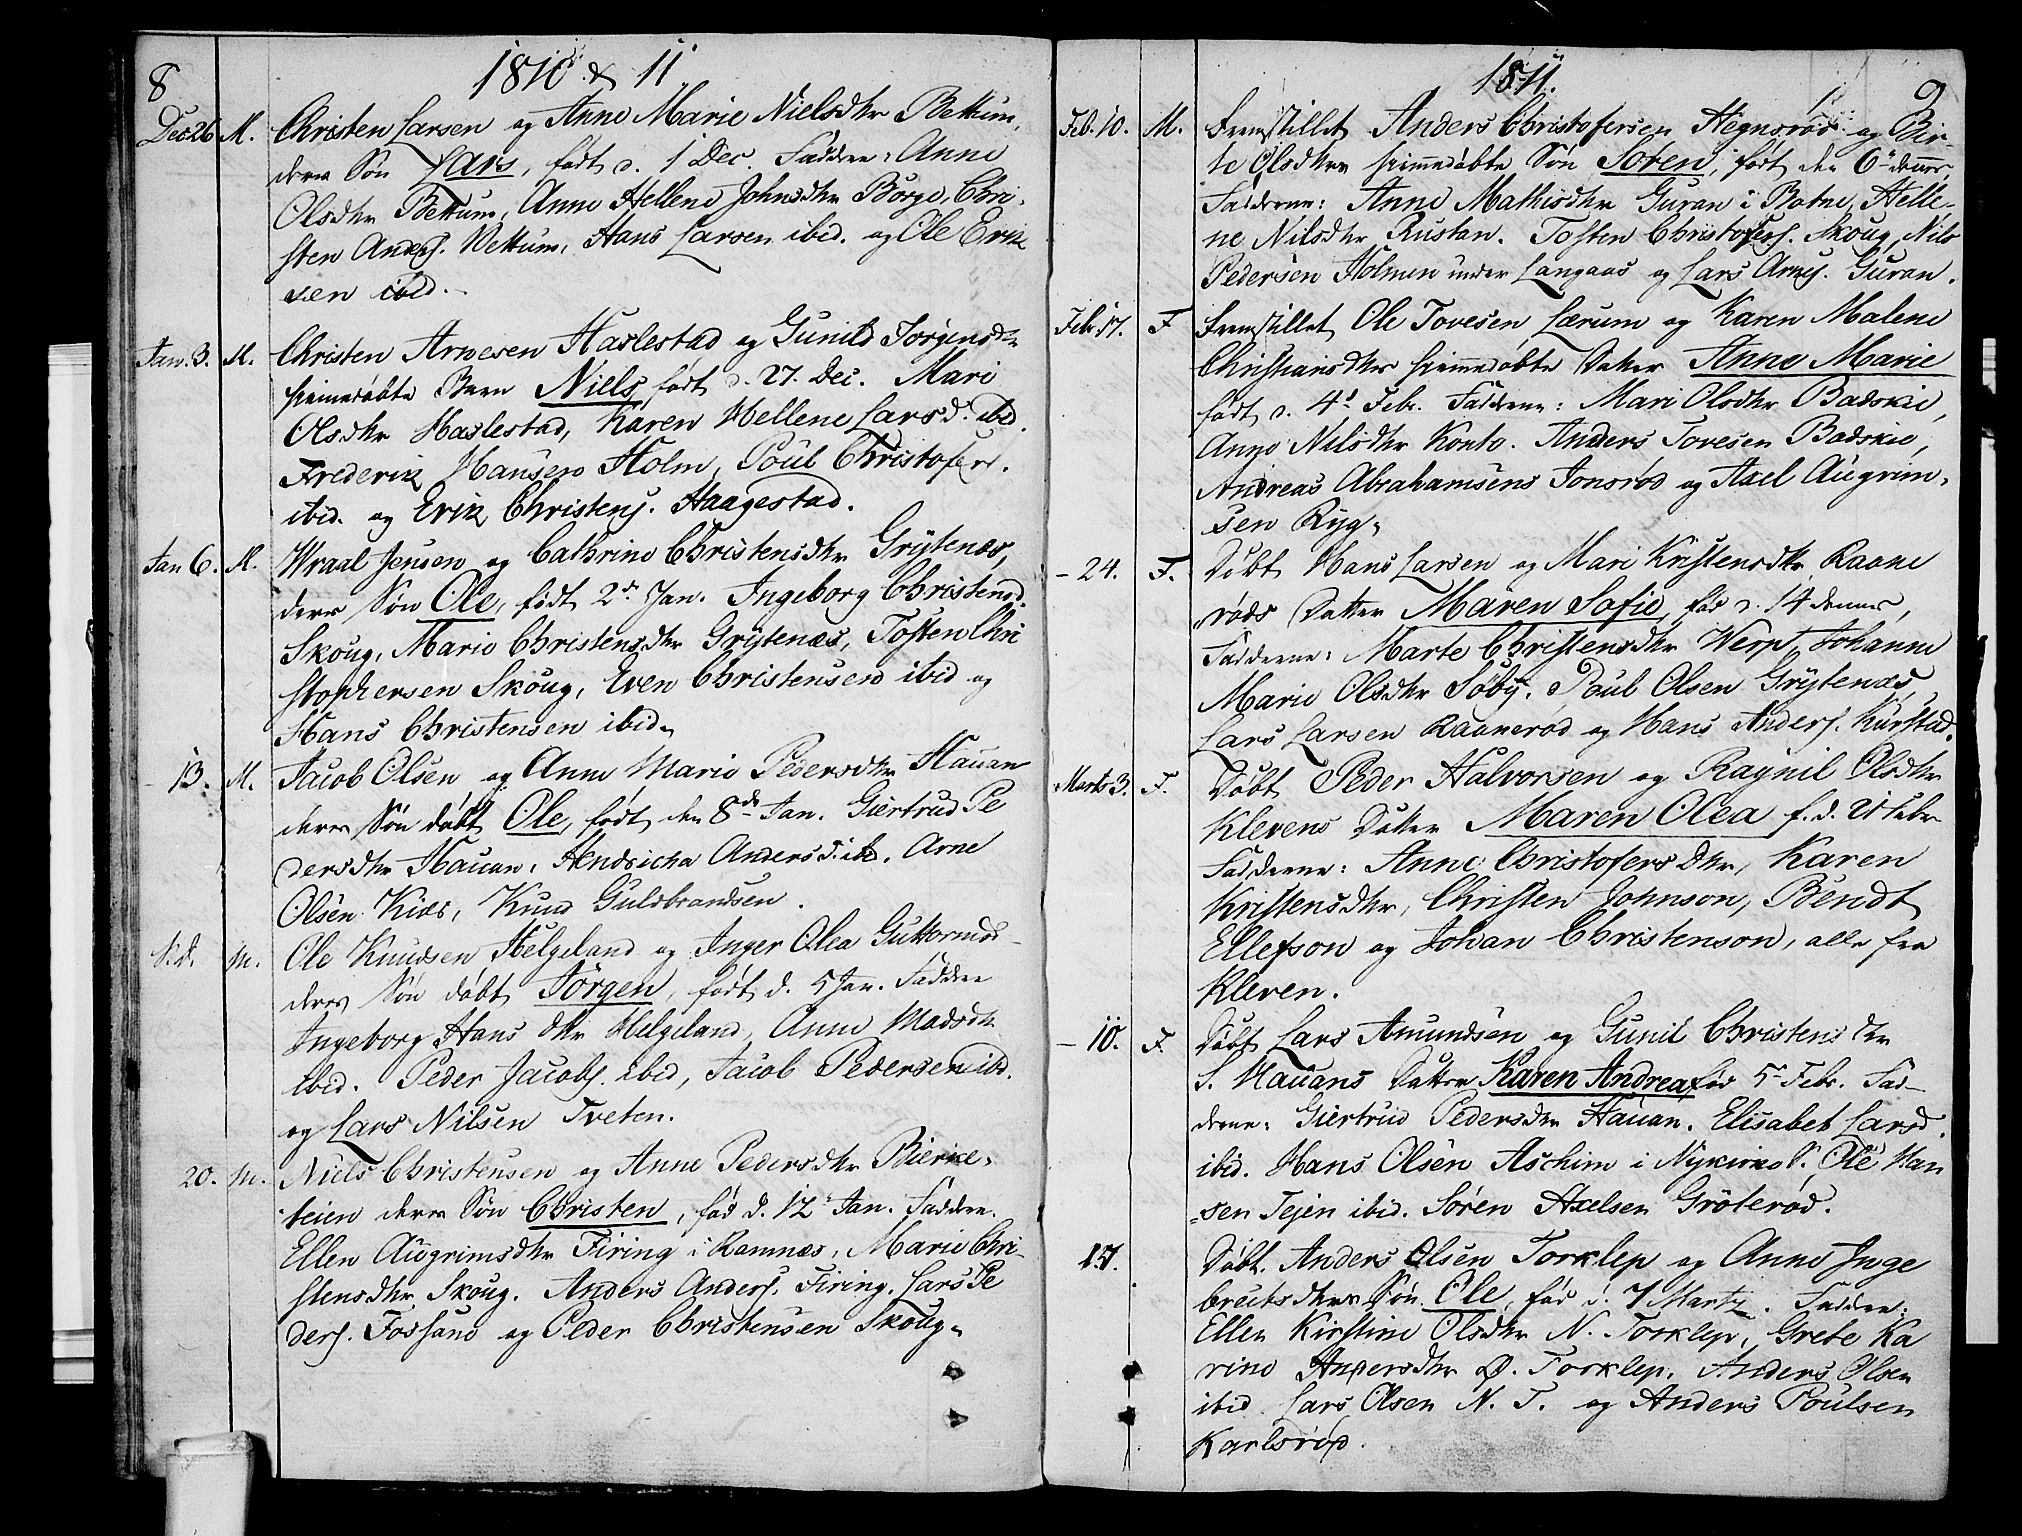 8
1810 & 11
Dec 26 M. Christen Larsen og Anne Marie Nielsdtr Bettum,
deres Søn Lars, født d. 1 Dec. Faddere: Anne
Olsdtr Bettum, Anne Hellene Johnsdtr Borge, Chri-
sten Anders. Bettum, Hans Larsen ibid. og Ole Erik
sen ibid.
Jan. 3. M. Christen Arnesen Haslestad og Gunild Jørgensdtr
hiemedøbte Barn Niels født d. 27. Dec. Mari
Olsdtr Haslestad, Karen Hellene Larsd. ibid.
Frederik Hansen Holm, Poul Christofers.
ibid. og Erik Christens. Haagestad.
Jan 6. M. Wraal Jensen og Cathrine Christensdtr Grytenæs,
deres Søn Ole, født 2d Jan. Ingeborg Christensd.
Skoug, Marie Christensdtr Grytenæs, Tosten Chri
stophersen Skoug, Even Christensen ibid og
Hans Christensen ibid.
- 13. M. Jacob Olsen og Anne Marie Pedersdtr Hauan
deres Søn døbt Ole, født den 8de Jan. Giertrud Pe
dersdtr Hauan, Hendricha Andersd. ibid. Arne
Olsen Kiær, Knud Guldbrandsen.
S.d. M. Ole Knudsen Helgeland og Inger Olea Guttormsd
deres Søn døbt Jörgen, født d. 5 Jan. Faddere
Ingeborg Hans dtr Helgeland, Anne Madsdtr
ibid. Peder Jacobs. ibid, Jacob Pedersen ibid.
og Lars Nilsen Tveten.
20. M. Niels Christensen og Anne Pedersdtr Bierke-
teien deres Søn Christen, fød d. 12 Jan. Faddere.
Ellen Augrimsdtr Firing i Ramnæs, Marie Chri-
stensdtr Skoug. Anders Anders. Firing. Lars Pe
ders. Fossane og Peder Christensen Skoug.
1811.
9
Feb. 10. M. Fremstillet Anders Christofersen Hegnsrød og Bir-
te Olsdtrs hiemmedøbte Søn Sören, født den 6te dennes,
Fadderne: Anne Mathisdtr Guran i Botne, Helle-
ne Nilsdtr Rustan. Tosten Christofers. Skoug, Nils
Pedersen Holmen under Langaas og Lars Arnes. Guran.
Febr. 17. F Fremstillet Ole Tovesen Lærum og Karen Malene
Christiansdtrs hiemmedøbte Datter Anne Marie
født d. 4d Febr. Fadderne: Mari Olsdtr Badskie,
Anne Nilsdtr Konto. Anders Tovesen Badskie,
Andreas Abrahamsens Jonsrød og Axel Augrim-
sen Ryg.
- 24. F. Døbt Hans Larsen og Mari Kristensdtr Raane
røds Datter Maren Sofie, fød d. 14 dennes,
Fadderne: Marte Christensdtr Werp, Johanne
Marie Olsdtr Søby. Poul Olsen Grytenæs,
Lars Larsen Raanerød og Hans Anders. Kurstad.
Marts 3. F. Døbt Peder Halvorsen og Ragnil Olsdtr
Klevens Datter Maren Olea f. d. 21 Febr
Fadderne: Anne Christofers dtr, Karen
Kristensdtr, Christen Johnson, Bendt
Ellefson og Johan Christenson, alle fra
Kleven.
- 10. F. Døbt Lars Amundsen og Gunil Christens dtr
S. Hauans Datter Karen Andrea fød 5 Febr. Fad-
derne: Giertrud Pedersdtr Hauan. Elisabet Larsd.
ibid. Hans Olsen Aschim i Nykirke S. Ole Han
sen Tejen ibid. Søren Axelsen Gröterød.
17. Døbt. Anders Olsen Torklep og Anne Inge
breitsdtrs Søn Ole, fød d. 7 Marty. Faddere:
Ellen Kirstine Olsdtr N. Torklep, Grete Ka
rine Andersdtr Ø. Torklep. Anders Olsen
ibid Lars Olsen N. T. og Anders Poulsen
Karlsrød.